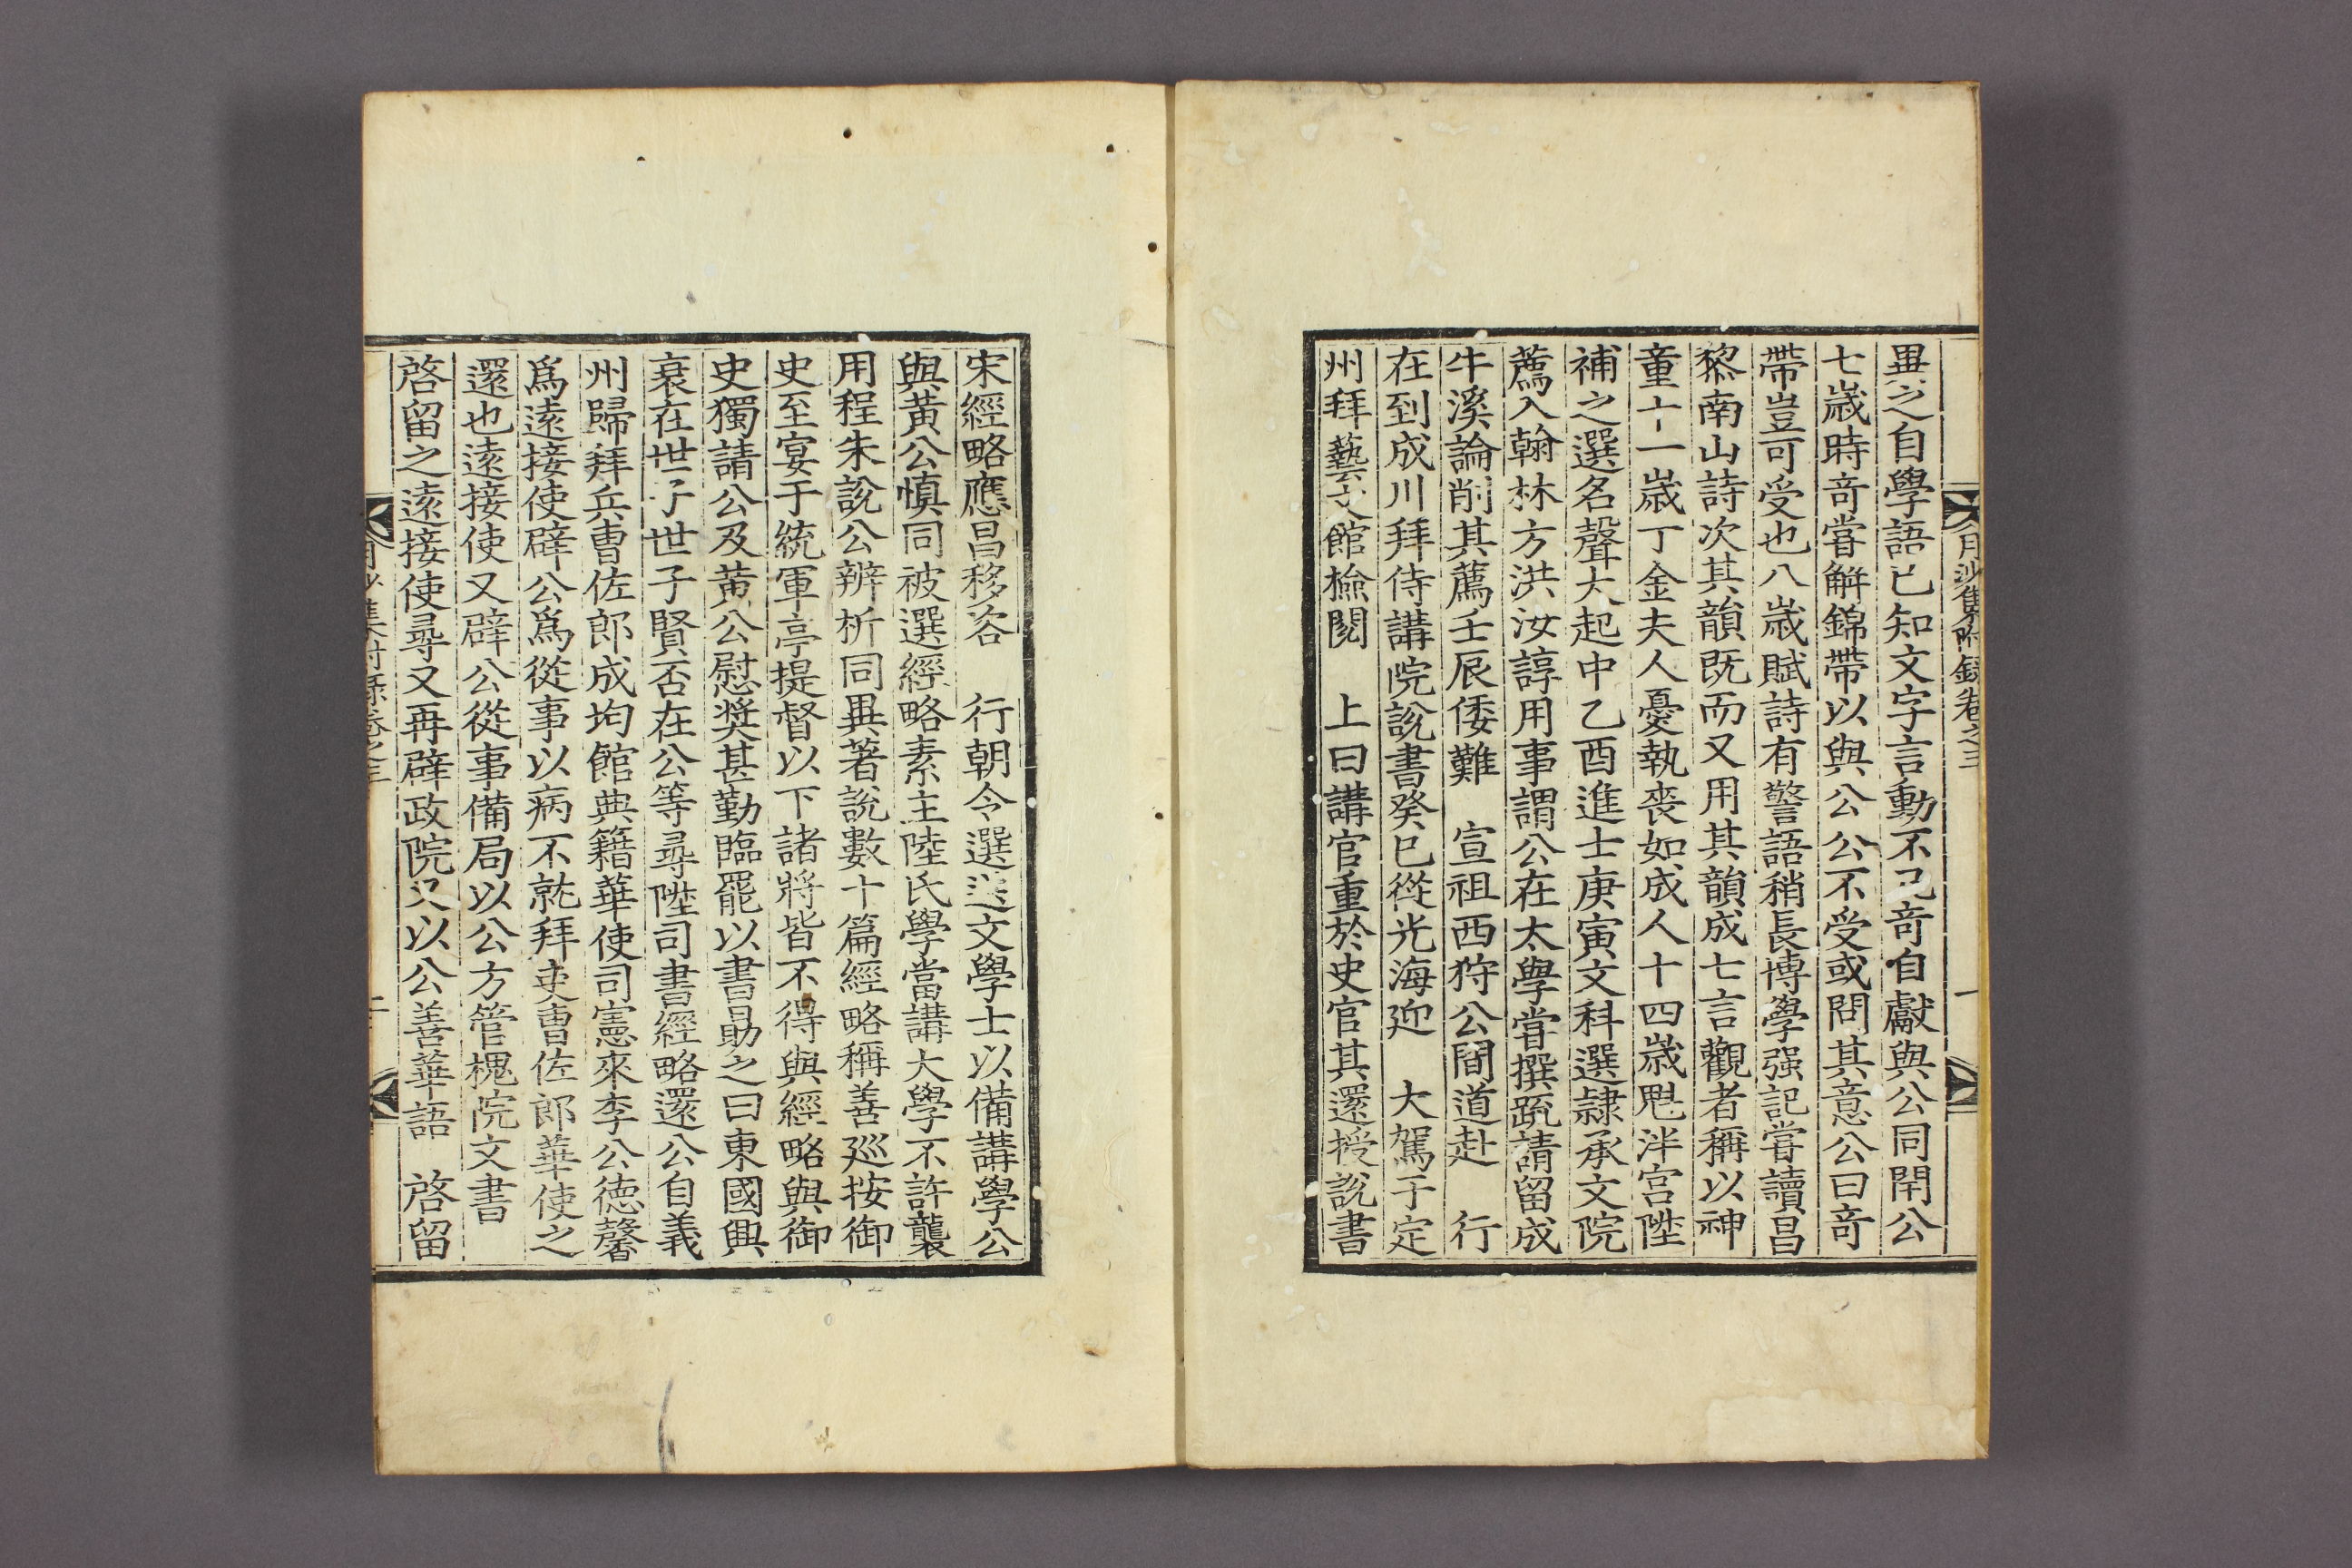 月沙集附錄卷之三
一
異之自學語已知文字言動不凡竒自獻與公同閈公
七歲時竒嘗觧錦帶以與公公不受或問其意公曰竒
帶豈可受也八歲賦詩有警語稍長博學强記嘗讀昌
黎南山詩次其韻旣而又用其韻成七言觀者稱以神
童十一歲丁金夫人憂執喪如成人十四歲魁泮宮陞
補之選名聲大起中乙酉進士庚寅文科選隷承文院
薦入翰林方洪汝諄用事謂公在太學嘗撰疏請留成
牛溪論削其薦壬辰倭難 宣祖西狩公間道赴 行
在到成川拜侍講院說書癸巳從光海迎 大駕于定
州拜藝文館檢閱 上曰講官重於史官其還授說書
宋經略應昌移咨 行朝令選送文學士以備講學公
與黃公愼同被選經略素主陸氏學當講大學不許襲
用程朱說公辨析同異著說數十篇經略稱善廵按御
史至宴于統軍亭提督以下諸將皆不得與經略與御
史獨請公及黃公慰奬甚勤臨罷以書勗之曰東國興
衰在世子世子賢否在公等尋陞司書經略還公自義
州歸拜兵曹佐郎成均館典籍華使司憲來李公德馨
爲遠接使辟公爲從事以病不就拜吏曹佐郎華使之
還也遠接使又辟公從事備局以公方管槐院文書
啓留之遠接使尋又再辟政院又以公善華語 啓留
月沙集附錄卷之三
二